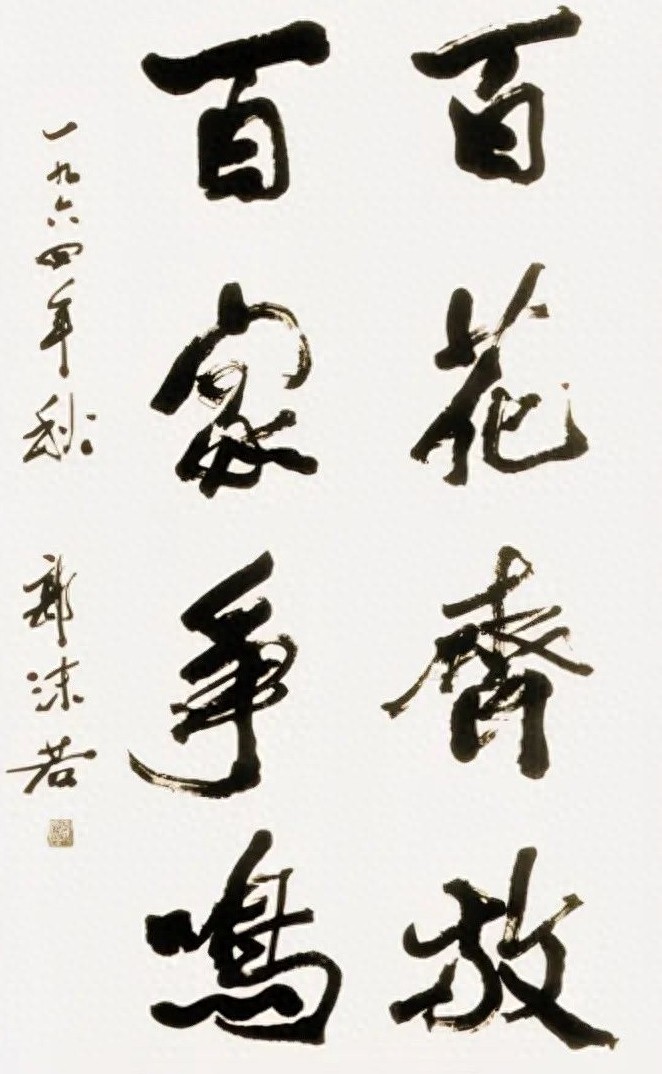 百花齊放
百家争鳴
一九六四年秋 郭沫若